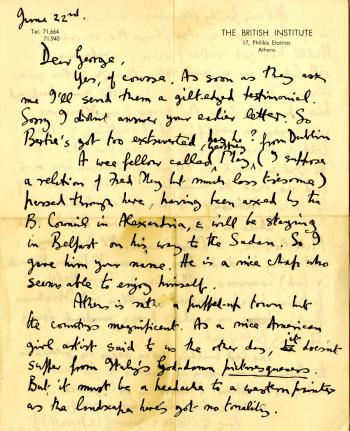 June 22nd.
Tel. 71.664
71.940
THE BRITISH INSTITUTE
17, Philikis Etairias
Athens
Dear George,
Yes, of course. As soon as they ask
me I'll send them a gilt-edged testimonial.
Sorry I didn't answer your earlier letter. So
Bertie's got too extroverted, has he?
A wee fellow called Geoffrey May, from Dublin (I suppose
a relation of Fred May but much less tiresome)
passed through here, having been axed by the
B. Council in Alexandria, & will be staying
in Belfast on his way to the Sudan. So I
gave him your name. He is a nice chap who
seems able to enjoy himself.
Athens is rather a puffed-up town but
the country's magnificent. As a nice American
girl artist said to us the other day, it doesn't
suffer from Italy's God-damn picturesqueness.
But it must be a headache to a western painter
as the landscape has got no tonality.